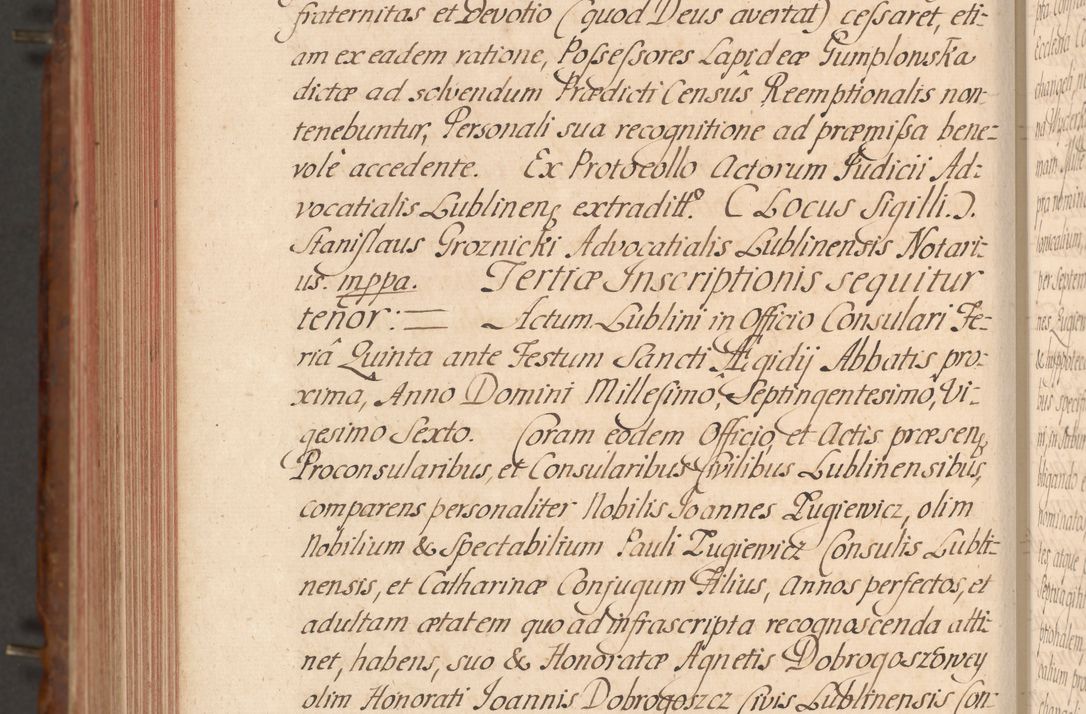 fraternitas et Devotio (quod Deus avertat) cessaret, eti-
am ex eadem ratione, Possessores Lapideæ Gumplowska
dictæ ad solvendum Prædicti Censûs Reemptionalis non
tenebuntur, Personali sua recognitione ad præmissa bene-
volè accedente. Ex Protocollo Actorum Judicii Ad-
vocatialis Lublinen: extraditt. (Locus Sigilli.).
Stanislaus Groznicki Advocatialis Lublinensis Notari-
us. mppa. Tertiæ Inscriptionis sequitur
tenor: = Actum Lublini in Officio Consulari Fe-
riâ Quinta ante Festum Sancti Ægidij Abbatis pro-
xima, Anno Domini Millesimo, Septingentesimo, Vi-
gesimo Sexto. Coram eodem Officio et Actis præsen:
Proconsularibus, et Consularibus Civilibus Lublinensibus,
comparens personaliter Nobilis Joannes Zugiewicz, olim
Nobilium & Spectabilium Pauli Zugiewicz Consulis Lubli-
nensis, et Catharinæ Conjugum Filius, annos perfectos, et
adultam ætatem quo ad infrascripta recognoscenda atti-
net, habens, suo & Honoratæ Agnetis Dobrogoszowey
olim Honorati Joannis Dobrogoszcz Civis Lublinensis Con-